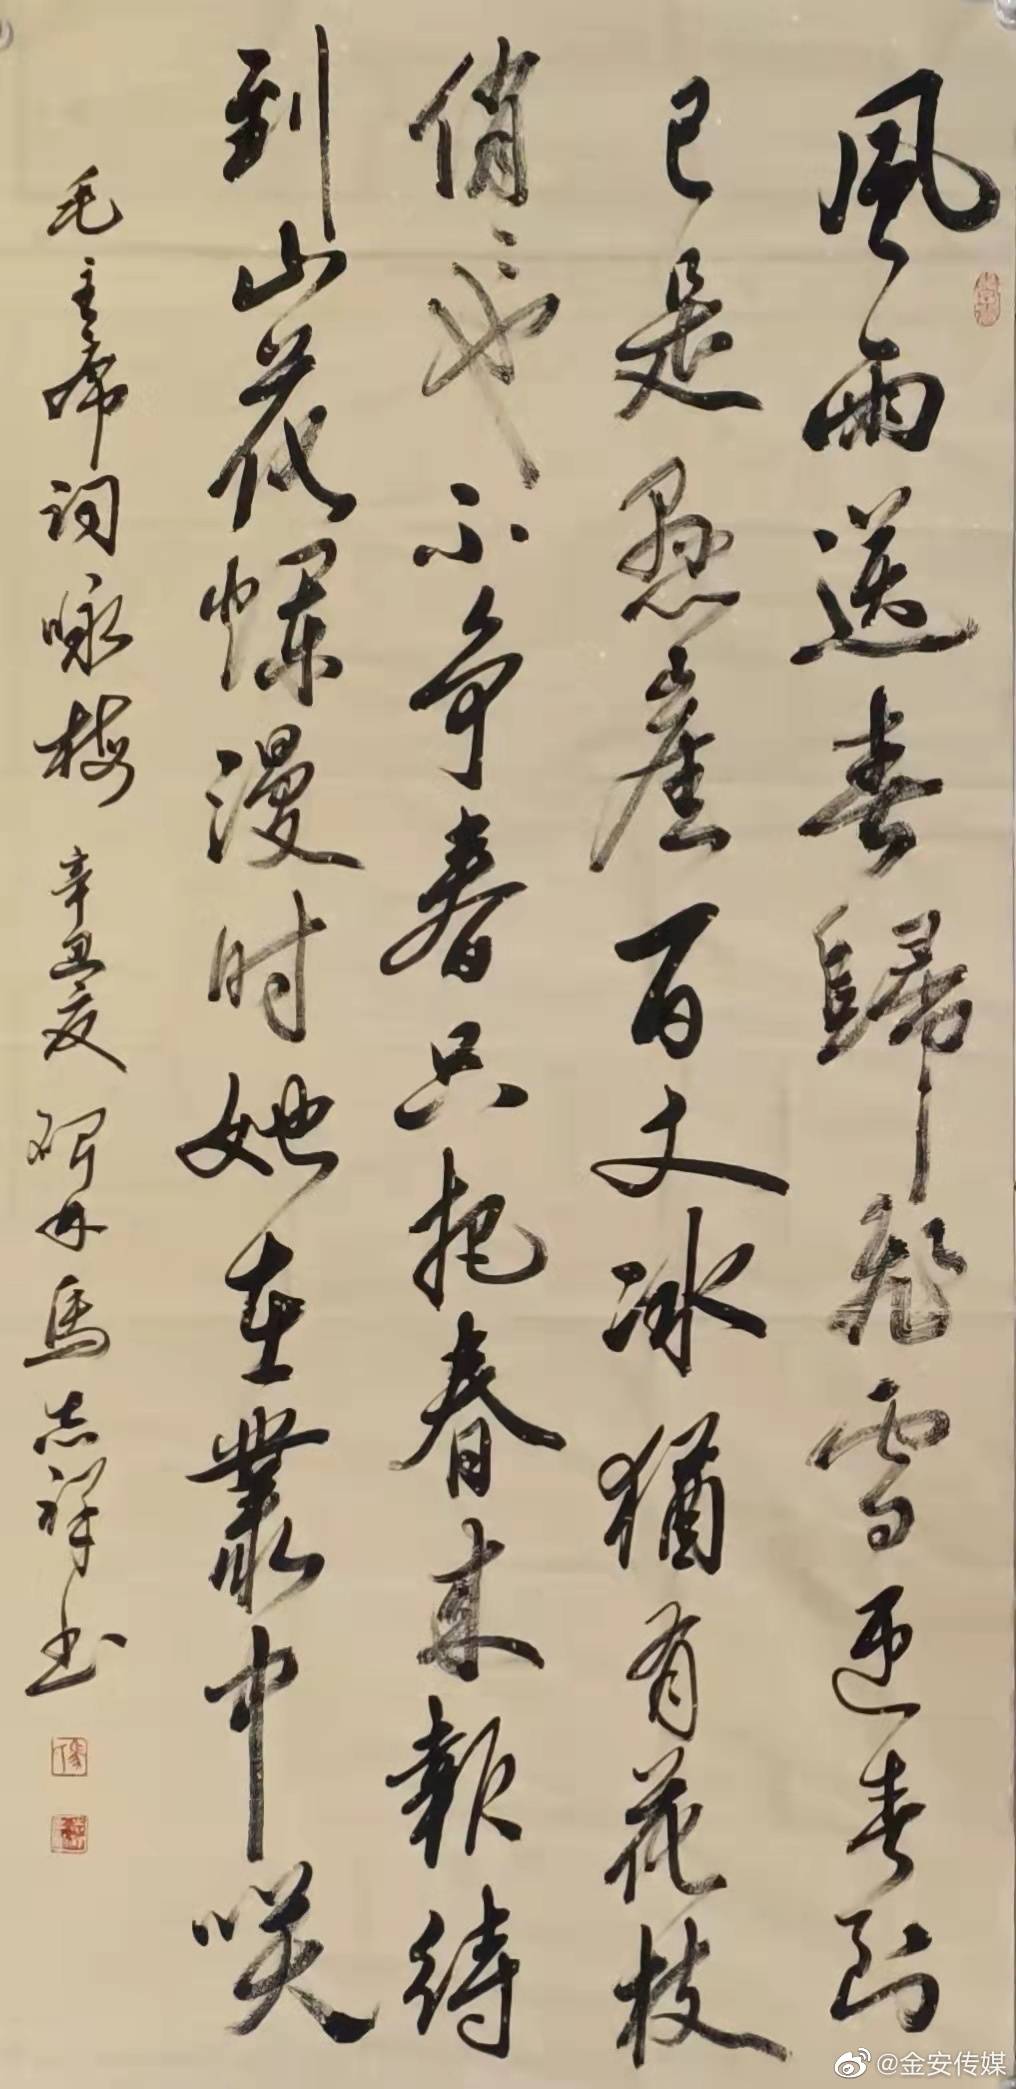 風雨送春歸飛雪迎春到
已是悬崖百丈冰猶有花枝
俏也不争春只把春来報待
到山花爛漫时她在叢中咲
毛主席词咏梅 辛丑夏 馬志祥书
@金安传媒